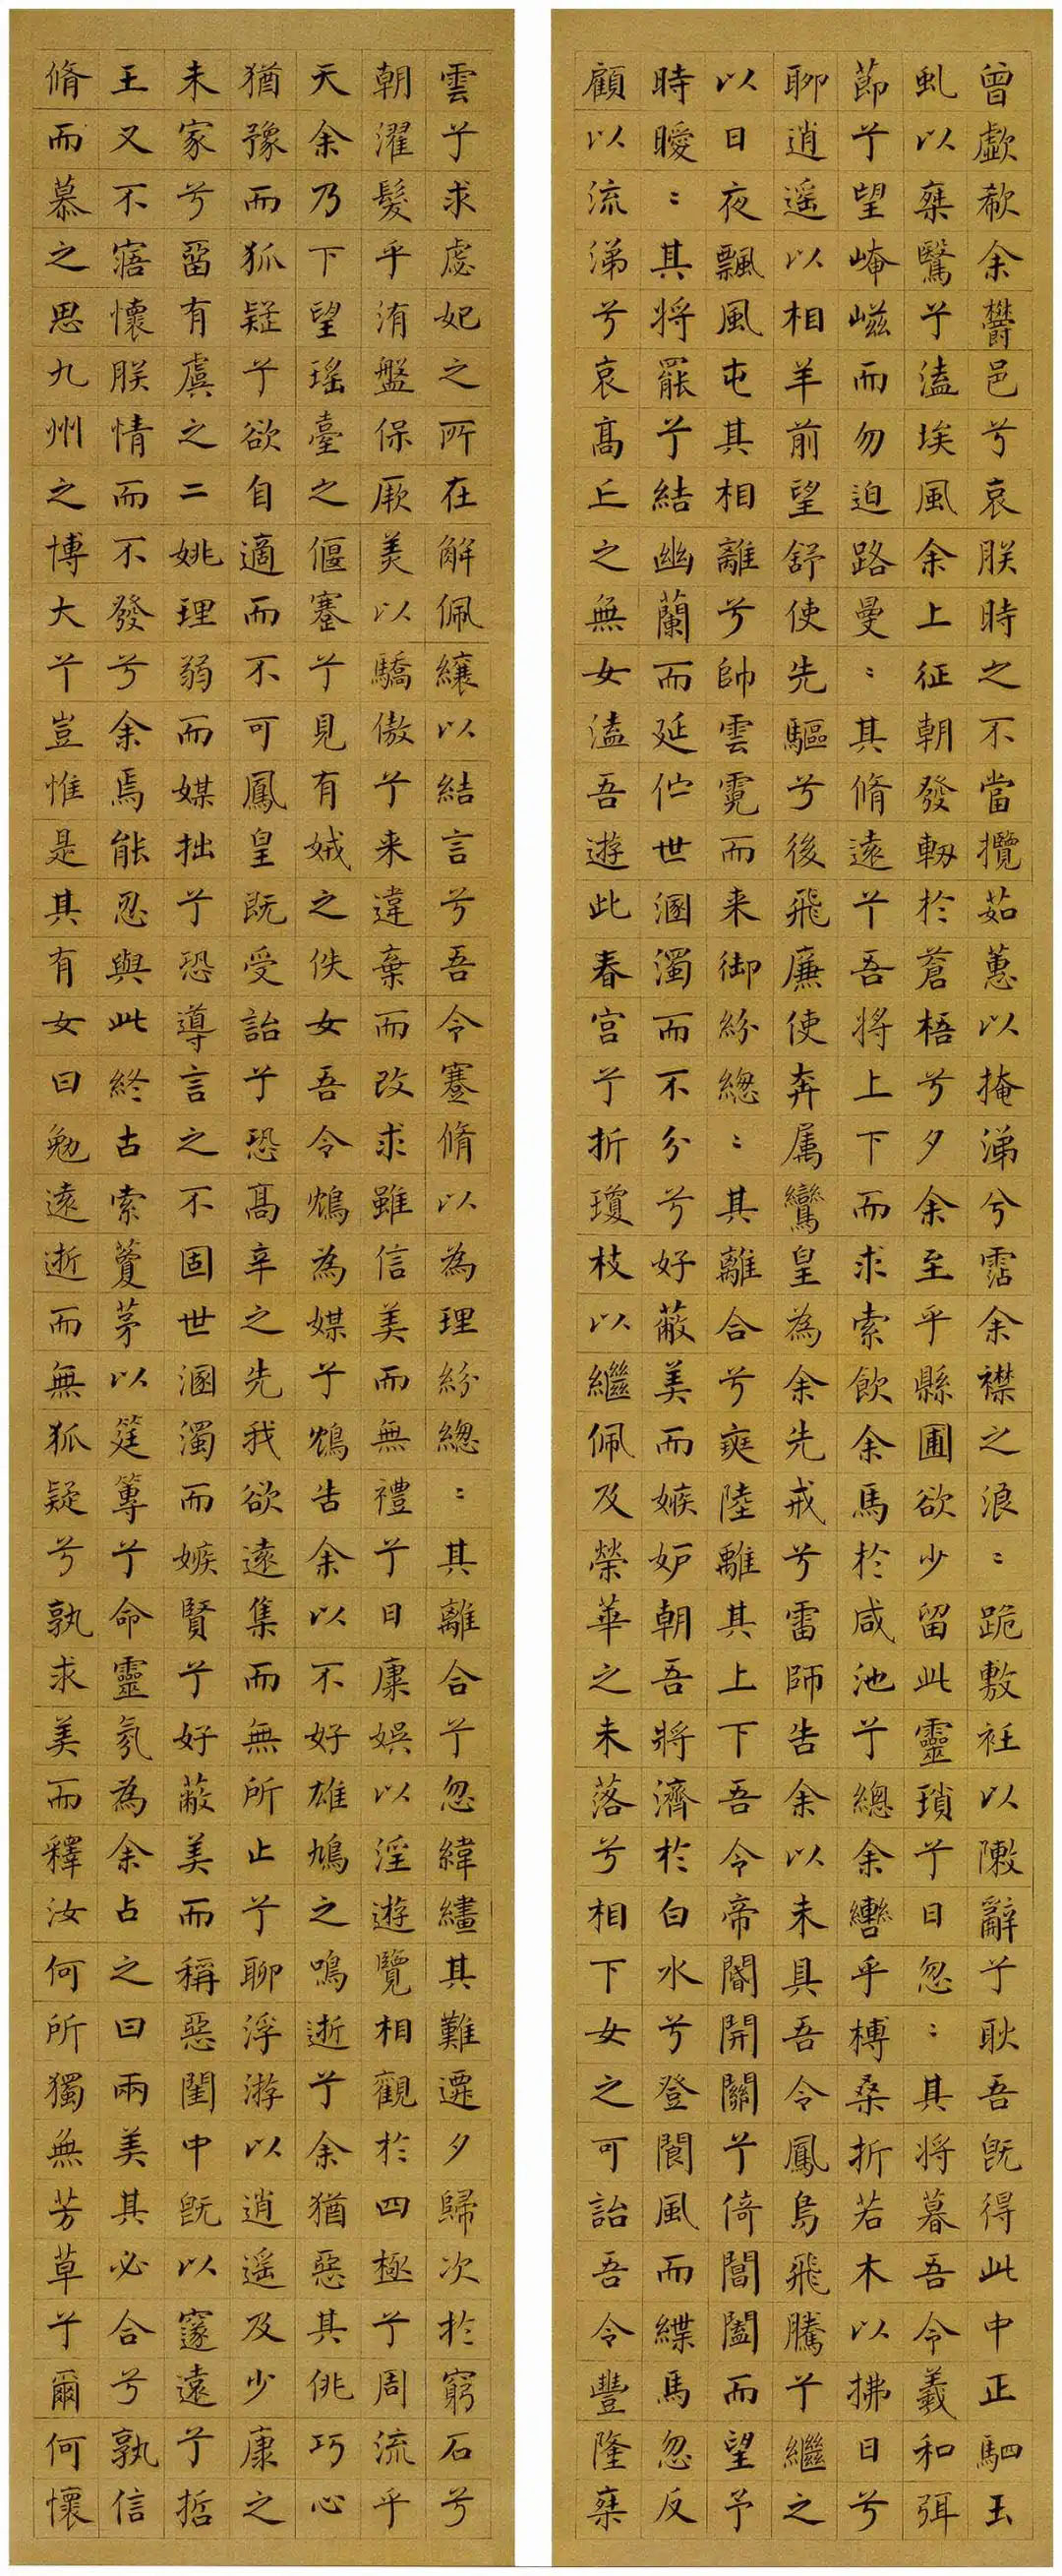 曾歔欷余鬱邑兮哀朕時之不當攬茹蕙以掩涕兮霑余襟之浪〻跪敷衽以陳辭兮耿吾既得此中正駟玉
虬以椉鷖兮溘埃風余上征朝發軔於蒼梧兮夕余至乎縣圃欲少留此靈瑣兮日忽〻其將暮吾令羲和弭
節兮望崦嵫而勿迫路曼〻其脩遠兮吾將上下而求索飲余馬於咸池兮總余轡乎榑桑折若木以拂日兮
聊逍遥以相羊前望舒使先驅兮後飛廉使奔属鸞皇為余先戒兮雷師告余以未具吾令鳳鳥飛騰兮繼之
以日夜飄風屯其相離兮帥雲霓而来御紛緫〻其離合兮斑陸離其上下吾令帝閽開關兮倚閶闔而望予
時曖〻其將罷兮結幽蘭而延佇世溷濁而不分兮好蔽美而嫉妒朝吾將濟於白水兮登閬風而緤馬忽反
顧以流涕兮哀高丘之無女溘吾遊此春宮兮折瓊枝以繼佩及榮華之未落兮相下女之可詒吾令豐隆椉
雲兮求虙妃之所在解佩纕以結言兮吾令蹇脩以為理紛緫〻其離合兮忽緯繣其難遷夕歸次於窮石兮
朝濯髮乎洧盤保厥美以驕傲兮来違棄而改求雖信美而無禮兮日康娛以淫遊覽相觀於四極兮周流乎
天余乃下望瑤臺之偃蹇兮見有娀之佚女吾令鴆為媒兮鴆告余以不好雄鳩之鳴逝兮余猶惡其佻巧心
猶豫而狐疑兮欲自適而不可鳳皇既受詒兮恐高辛之先我欲遠集而無所止兮聊浮游以逍遥及少康之
未家兮留有虞之二姚理弱而媒拙兮恐導言之不固世溷濁而嫉賢兮好蔽美而稱惡閨中既以邃遠兮哲
王又不寤懷朕情而不發兮余焉能忍與此終古索藑茅以筳篿兮命靈氛為余占之曰兩美其必合兮孰信
脩而慕之思九州之博大兮豈惟是其有女曰勉遠逝而無狐疑兮孰求美而釋汝何所獨無芳草兮爾何懷